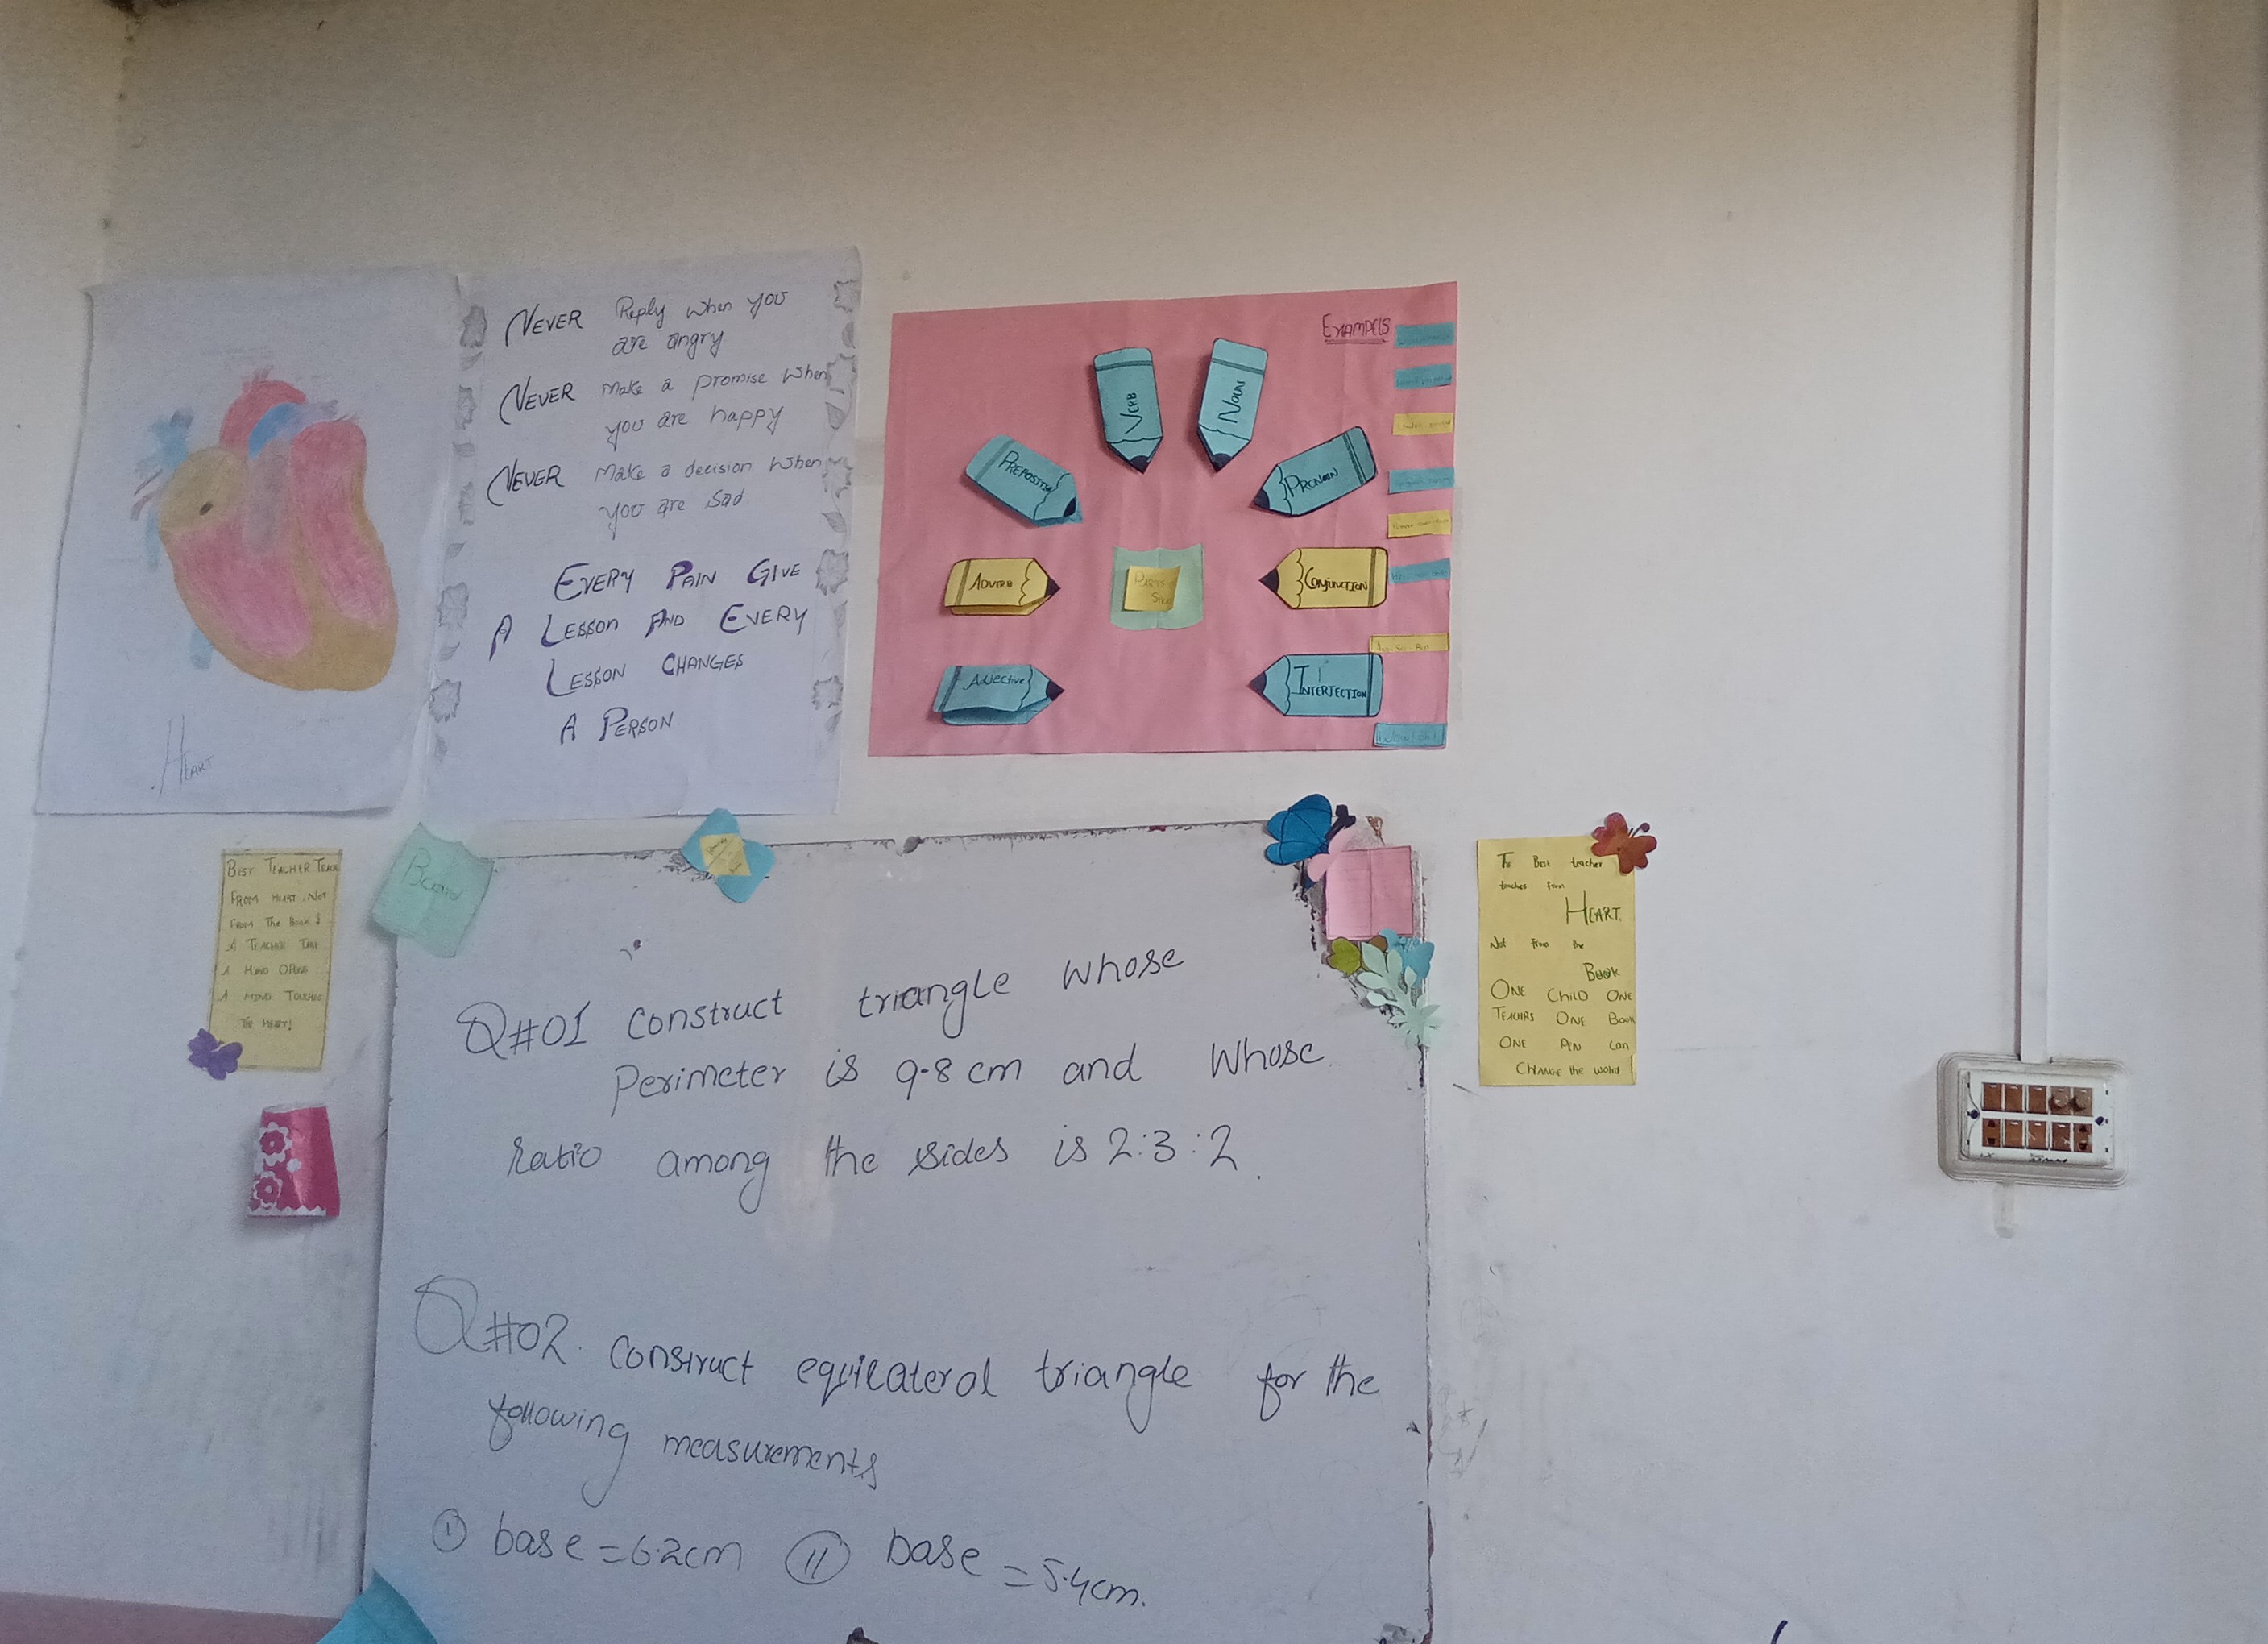 NEVER Reply when you
are angry
NEVER Make a promise when
you are happy
NEVER Make a decision when
you are Sad
EVERY PAIN GIVE
A LESSON AND EVERY
LESSON CHANGES
A PERSON
HEART
EXAMPELS
VERB
NOUN
PREPOSITION
PRONOUN
ADVERB
CONJUNCTION
ADJECTIVE
INTERJECTION
BEST TEACHER TEACH
FROM HEART NOT
FROM THE BOOK
A TEACHER
A
A MIND TOUCHES
THE HEART!
Board
The Best teacher
teaches from
HEART
Not from the
BOOK
ONE CHILD ONE
ONE BOOK
ONE PEN Can
CHANGE the world
Q#01 construct triangle whose
Perimeter is 9.8 cm and whose
ratio among the sides is 2:3:2.
Q#02. construct equilateral triangle for the
following measurements
(i) base = 6.2cm (ii) base = 5.4cm.